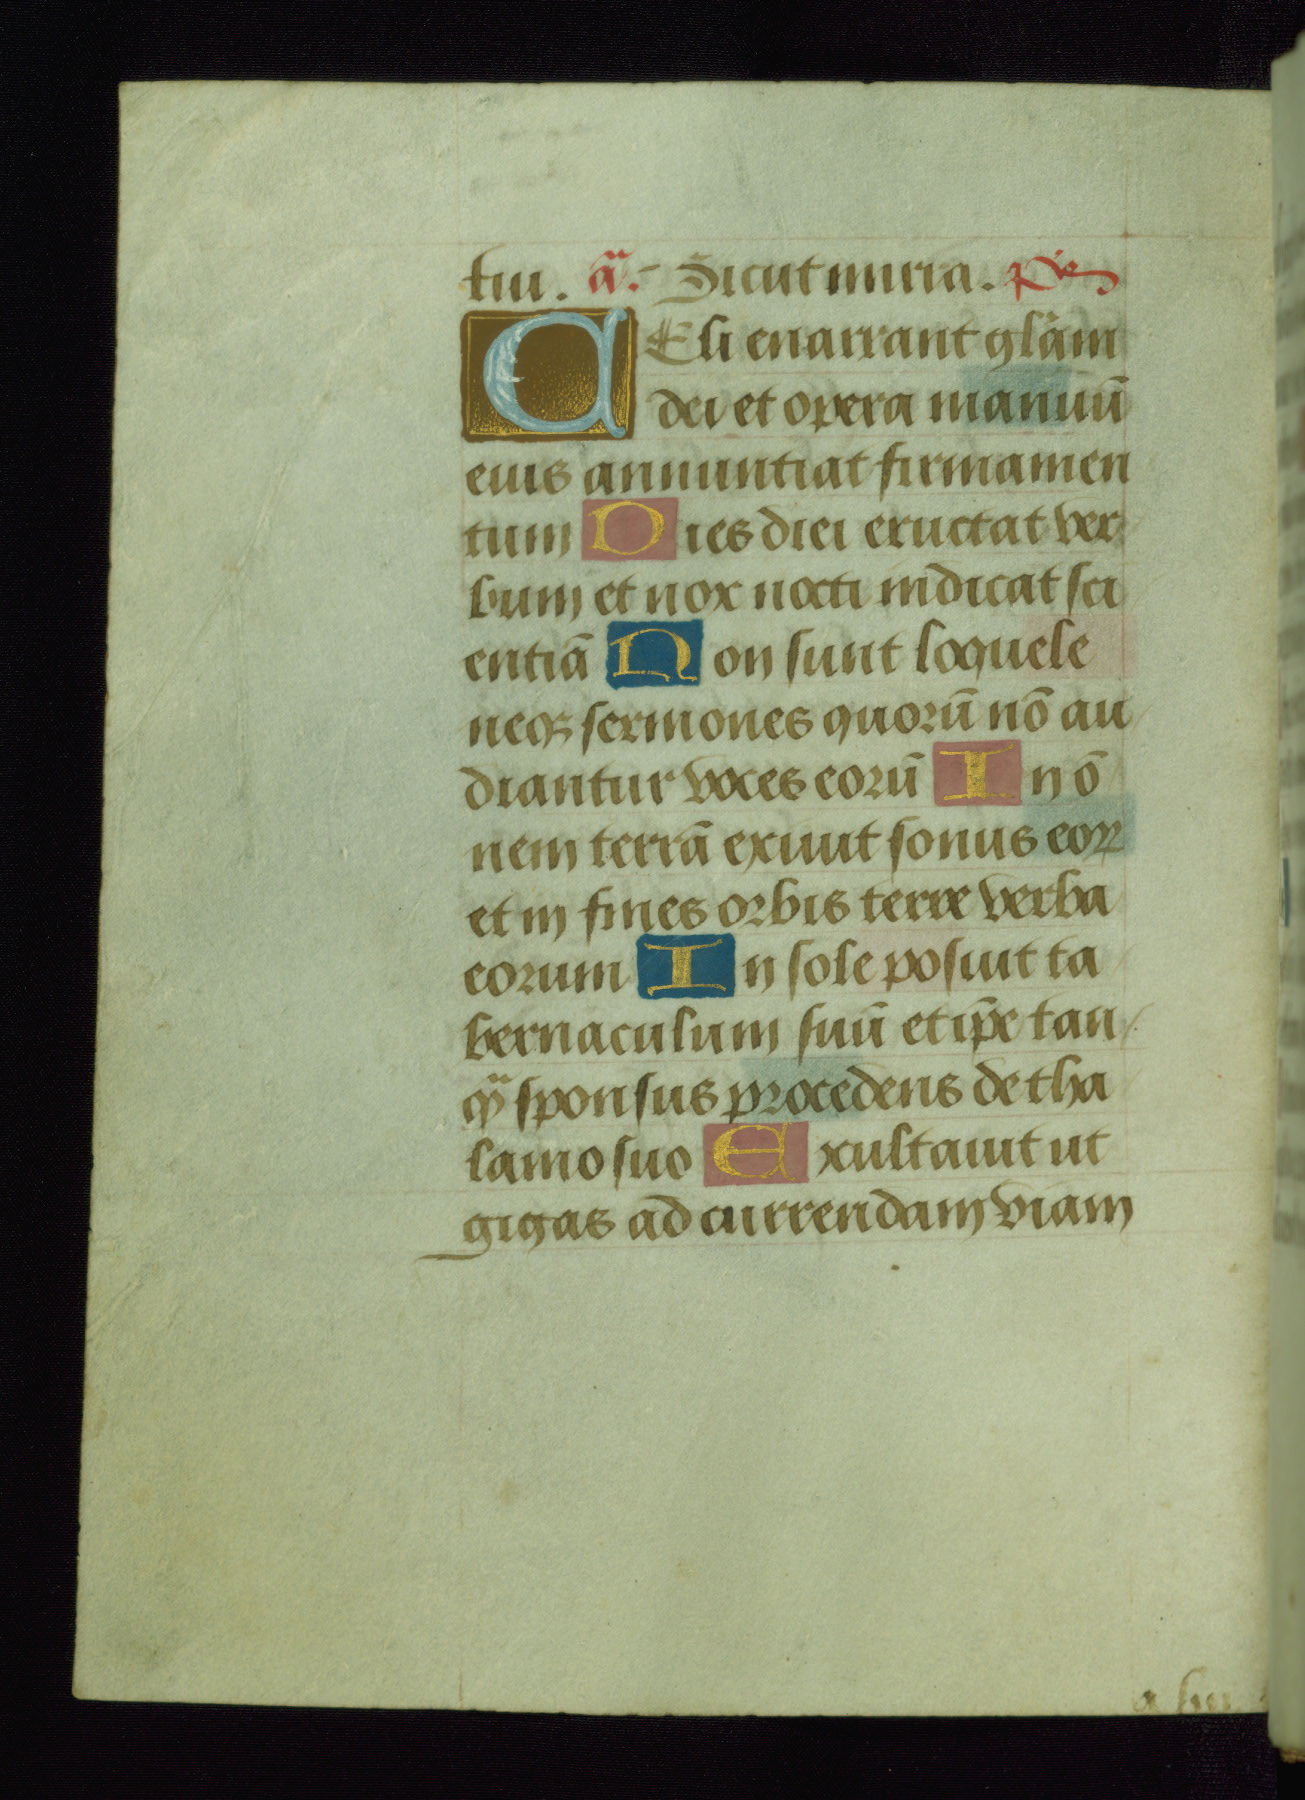 tui. añ. Sicut mirra. ps̄
CEli enarrant gl̄am
dei et opera manuū
eius annuntiat firmamen
tum Dies diei eructat ver
bum et nox nocti indicat sci
entiā Non sunt loquele
neqꝫ sermones quorū nō au
diantur voces eorū In ō
nem terrā exiuit sonus eoꝝ
et in fines orbis terre verba
eorum In sole posuit ta
bernaculum suū et ip̄e tan
qͣ̄ sponsus procedens de tha
lamo suo Exultauit ut
gigas ad currendam viam